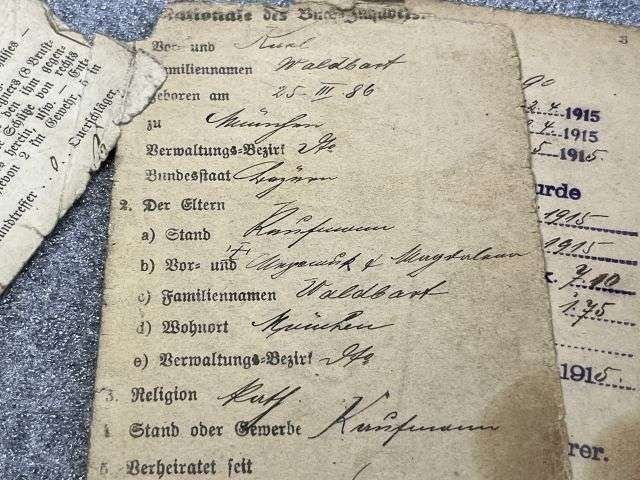 Nationale des Buch-Inhabers.
Vor- und Karl
Familiennamen Waldbart
geboren am 25-III-86
zu München
Verwaltungs-Bezirk dto
Bundesstaat Bayern
2. Der Eltern
a) Stand Kaufmann
b) Vor- und & Magdalena
c) Familiennamen Waldbart
d) Wohnort München
e) Verwaltungs-Bezirk dto
3. Religion kath.
4 Stand oder Gewerbe Kaufmann
5 Verheiratet seit
gners (8 Brust-
den ihm gegen-
e Schütze von rechts
herein, usw. — Ent-
davon 2 im Gewehr, 5 in
undtreffer . 0. Querschläger.
3
1915
4. 1915
5 1915.
urde
1915
1915
7.10
1.75
1915.
rer.